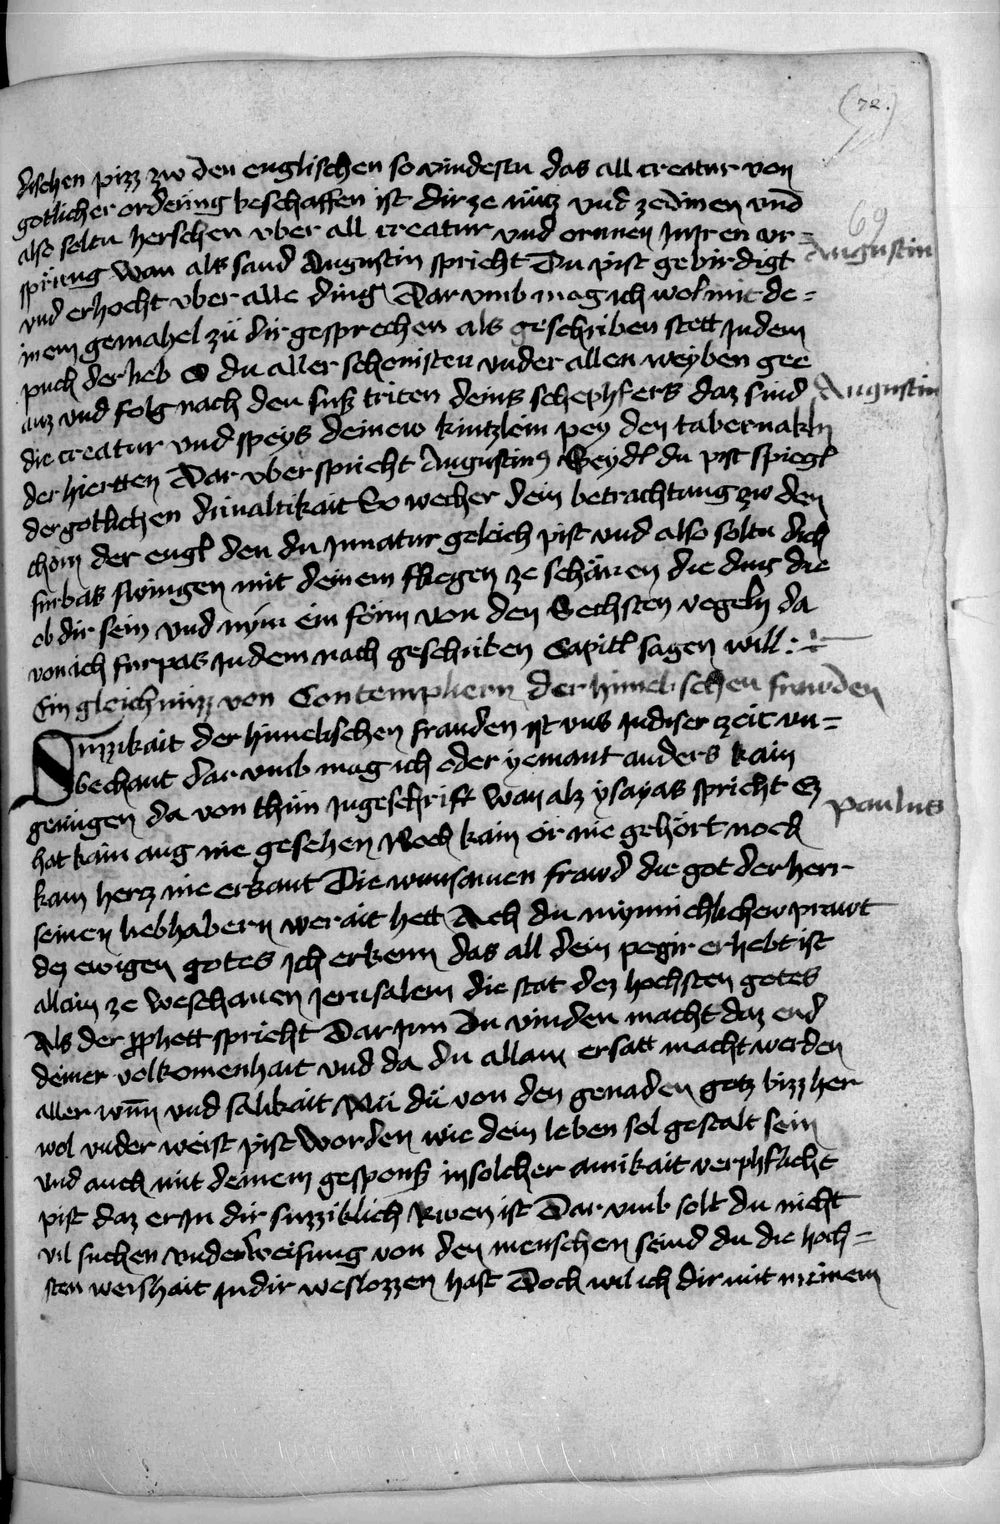 (72.)
dischen pizz zw den englischen so vindestu das all creatur von
gotlicher orderung beschaffen ist dir ze nutz vnd ze dinen vnd
69
also soltu herschen vber all creatur vnd ornnen jn jren vr=
Augustin
sprung wan als sand Augustin spricht Du pist gebirdigt
vnd erhocht vber alle ding Dar vmb mag ich wol mit de=
inem gemahel zu dir gesprechen als geschriben stett jn dem
puch der lieb O du aller schonisten vnder allen weyben gee
auz vnd folg nach den fusz triten deins schephfers daz sind
Augustin
die creatur vnd speys deinew kintzlein pey den tabernakln
der hiertten Dar vber spricht Augustinus Seydl du pist spiegl
der gotlichen driualtikait So wecher dein betrachtung zw den
chorn der engl den du jn natur geleich pist vnd also soltu dich
furbas swingen mit deinem fliegen ze schauen die ding die
ob dir sein vnd nym ein form von den Sechsten vogeln da
von ich furpas jn dem nach geschriben Capitl sagen will :
Ein gleichnuzz von Contempliern der himelischen frawden
Suzzikait der himelischen frauden ist vns jn diser zeit vn=
bechant dar vmb mag ich oder yemant anders kain
genugen da von thun jn geschrift wan alz ysayas spricht Ez
paulus
hat kain aug nie gesehen Noch kain or nie gehort noch
kain hercz nie erkant Die wunsamen frawd die got der herr
seinen liebhabern werait hett Ach du mynnichlichew prawt
dez ewigen gotes jch erkenn das all dein pegir erhebt ist
allain ze weschauen jerusalem die stat dez hochsten gotes
Als der prophett spricht Dar jnn Du vinden macht daz end
deiner volkomenhait vnd da du allain ersatt macht werden
aller wunn vnd salikait Nu du von den genaden gotz bizz her
wol vnder weist pist worden wie dein leben sol gestalt sein
vnd auch mit deinem gesponsz in solcher ainikait verphlicht
pist daz er jn dir suzziklich Rwen ist Dar vmb solt du nicht
vil suchen vnderweisung von den menschen seind du die hoch=
sten weishait jn dir weslozzen hast Doch wil ich dir mit meinem